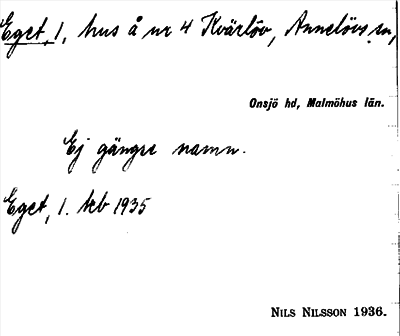 Eget, 1, hus å nr 4 Kvärlöv, Annelövs sn,
Onsjö hd, Malmöhus län.
Ej gängse namn.
Eget, 1. tkb 1935
NILS NILSSON 1936.